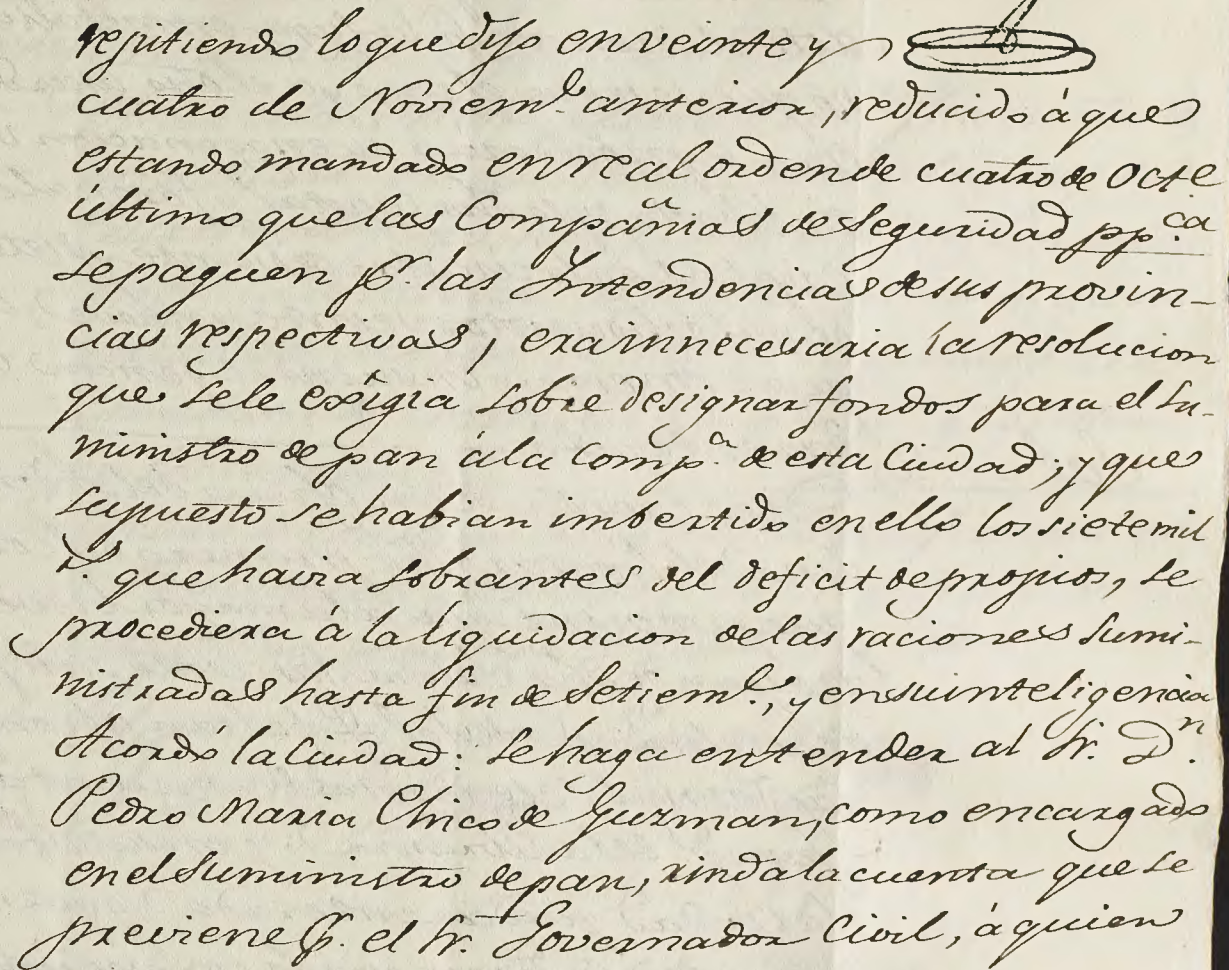 repitiendo lo que dijo en veinte y
cuatro de Noviem.e anterior, reducido á que
estando mandado en real orden de cuatro de Octe
último que las Compañias de Seguridad pp.ca
se paguen p.r las Intendencias de sus provin-
cias respectivas, era innecesaria la resolucion
que se le exîgia sobre designar fondos para el su-
ministro de pan á la Comp.a de esta Ciudad; y que
supuesto se habian imbertido en ello los siete mil
r.s que havia sobrantes del deficit de propios, se
procediera á la liquidacion de las raciones sumi-
nistradas hasta fin de Setiem.e, y en su inteligencia
Acordó la Ciudad: Se haga entender al Sr. D.n
Pedro Maria Chico de Guzman, como encargado
en el suministro de pan, rinda la cuenta que se
previene p.r el Sr. Governador Civil, á quien